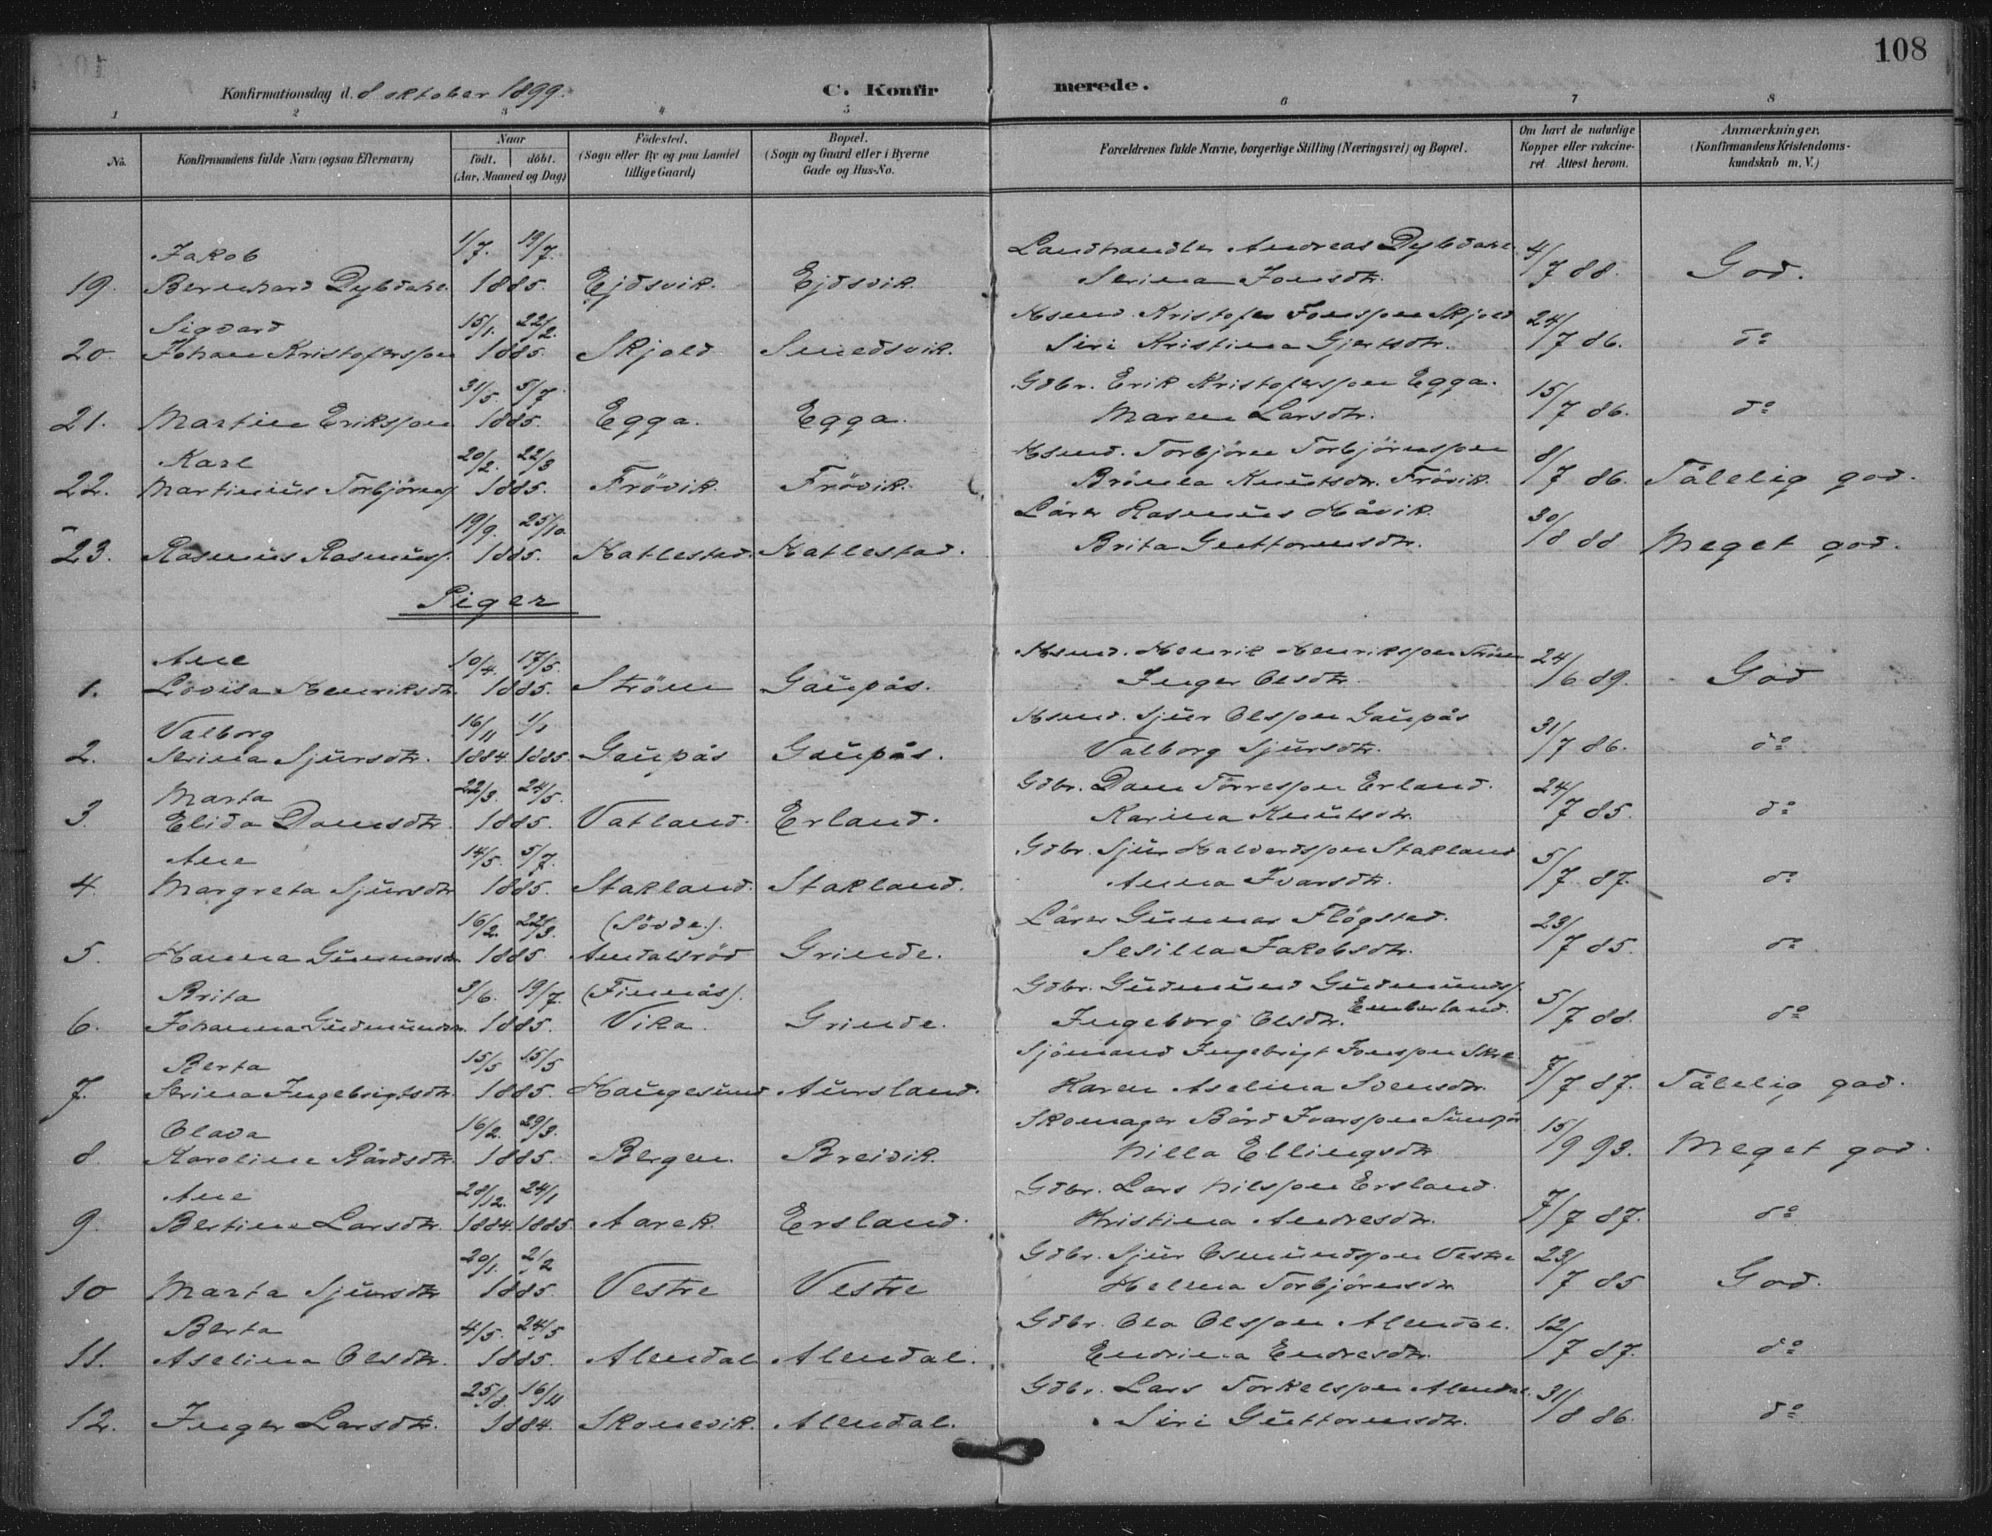 108
Konfirmationsdag d. 8 oktober 1899.
C. Konfirmerede.
1 2 3 4 5 6 7 8
No. Konfirmandens fulde Navn (ogsaa Efternavn) Naar født. døbt. (Aar, Maaned og Dag) Fødested. (Sogn eller By og paa Landet tillige Gaard) Bopæl. (Sogn og Gaard eller i Byerne Gade og Hus-No. Forældrenes fulde Navne, borgerlige Stilling (Næringsvei) og Bopæl. Om havt de naturlige Kopper eller vakcineret. Attest herom. Anmærkninger. (Konfirmandens Kristendomskundskab m. V.)
Jakob 1/7. 19/7. Landhandler Andreas Dybdahl 4/
19. Bernhard Dybdahl. 1885. Ejdsvik. Ejdsvik. Serina Jonsdtr. 7 88. God.
Sigvard 15/1. 22/2. Hsmd. Kristofer Jonsson Skjold 24/
20. Johan Kristofersson 1885. Skjold Smedsvik. Siri Kristina Gjertsdtr. 7 86. do
31/5. 5/7. Gdbr. Erik Kristofersson Egga. 15/
21. Martin Eriksson 1885. Egga. Egga. Maren Larsdtr. 7 86. do
Karl 20/2. 22/3 Hsmd. Torbjörn Torbjörnsson 8/
22. Martinius Torbjörns/. 1885. Frövik. Frövik. Knutsdtr. Frövik. 7 86. Tålelig god.
19/9. 25/10. Lärer Rasmus Håvik. 30/
23. Rasmus Rasmus/. 1885. Katlestad. Katlestad. Brita Guttormsdtr. 8 88 Meget god.
Piger
Ane 10/4. 17/5. Hsmd. Henrik Henriksson Ström 24/
1. Lovisa Henriksdtr. 1885. Ström Gaupås. Inger Olsdtr. 6 89. God
Valborg 16/11 1/1 Hsmd. Sjur Olsson Gaupås 31/
2. Serina Sjursdtr. 1884. 1885. Gaupås Gaupås. Valborg Sjursdtr. 7 86. do
Marta 22/3. 24/5. Gdbr. Dam Törresson Erland. 24/
3. Elida Damsdtr. 1885. Vatland. Erland. Karina Knutsdtr. 7 85. do
Ane 14/5. 5/7. Gdbr. Sjur Halvordsson Stakland 5/
4. Margreta Sjursdtr 1885. Stakland. Stakland. Anna Ivarsdtr. 7 87. do
16/2. 22/3. (Sövde). Lärer Gunnar Flögstad. 23/
5. Hanna Gunnarsdtr. 1885. Amdalsröd Grinde. Sesilla Jakobsdtr. 7 85. do
Brita 3/6. 19/7. (Finnås). Gdbr. Gudmund Gudmunds/. 5/
6. Johanna Gudmundsdtr. 1885. Vika. Grinde. Ingeborg Olsdtr. Emberland. 7 88. do
Berta 15/5 15/5 Sjömand Ingebrigt Jonsson 7/
7. Serina Ingebrigtsdtr. 1885. Haugesund Aursland. Karen Aselina Svensdtr. 7 87. Tålelig god.
Olava 16/2. 29/3. Skomager Bård Ivarsson 15/
8 Karoline Bårdsdtr. 1885. Bergen. Breivik. Nilla Ellingsdtr 9 93. Meget god.
Ane 28/12. 24/1 Gdbr. Lars Nilsson Ersland. 7/
9. Bertine Larsdtr. 1884. 1885. Aarek. Ersland. Kristina Andresdtr. 7 87. do
20/1. 2/2 Gdbr. Sjur Osmundsson Vestre 23/
10 Marta Sjursdtr 1885. Vestre Vestre Helena Torbjörnsdtr 7 85 God.
Berta 4/5. 24/5 Gdbr. Ola Olsson Alendal. 12/
11. Aselina Olsdtr. 1885. Alendal Alendal. Endrina Endresdtr. 7 87. do
25/8. 16/11 Gdbr. Lars Torkelsson Alendal. 31/
12. Inger Larsdtr. 1884. Skonevik. Alendal. Siri Guttormsdtr. 8 86. do